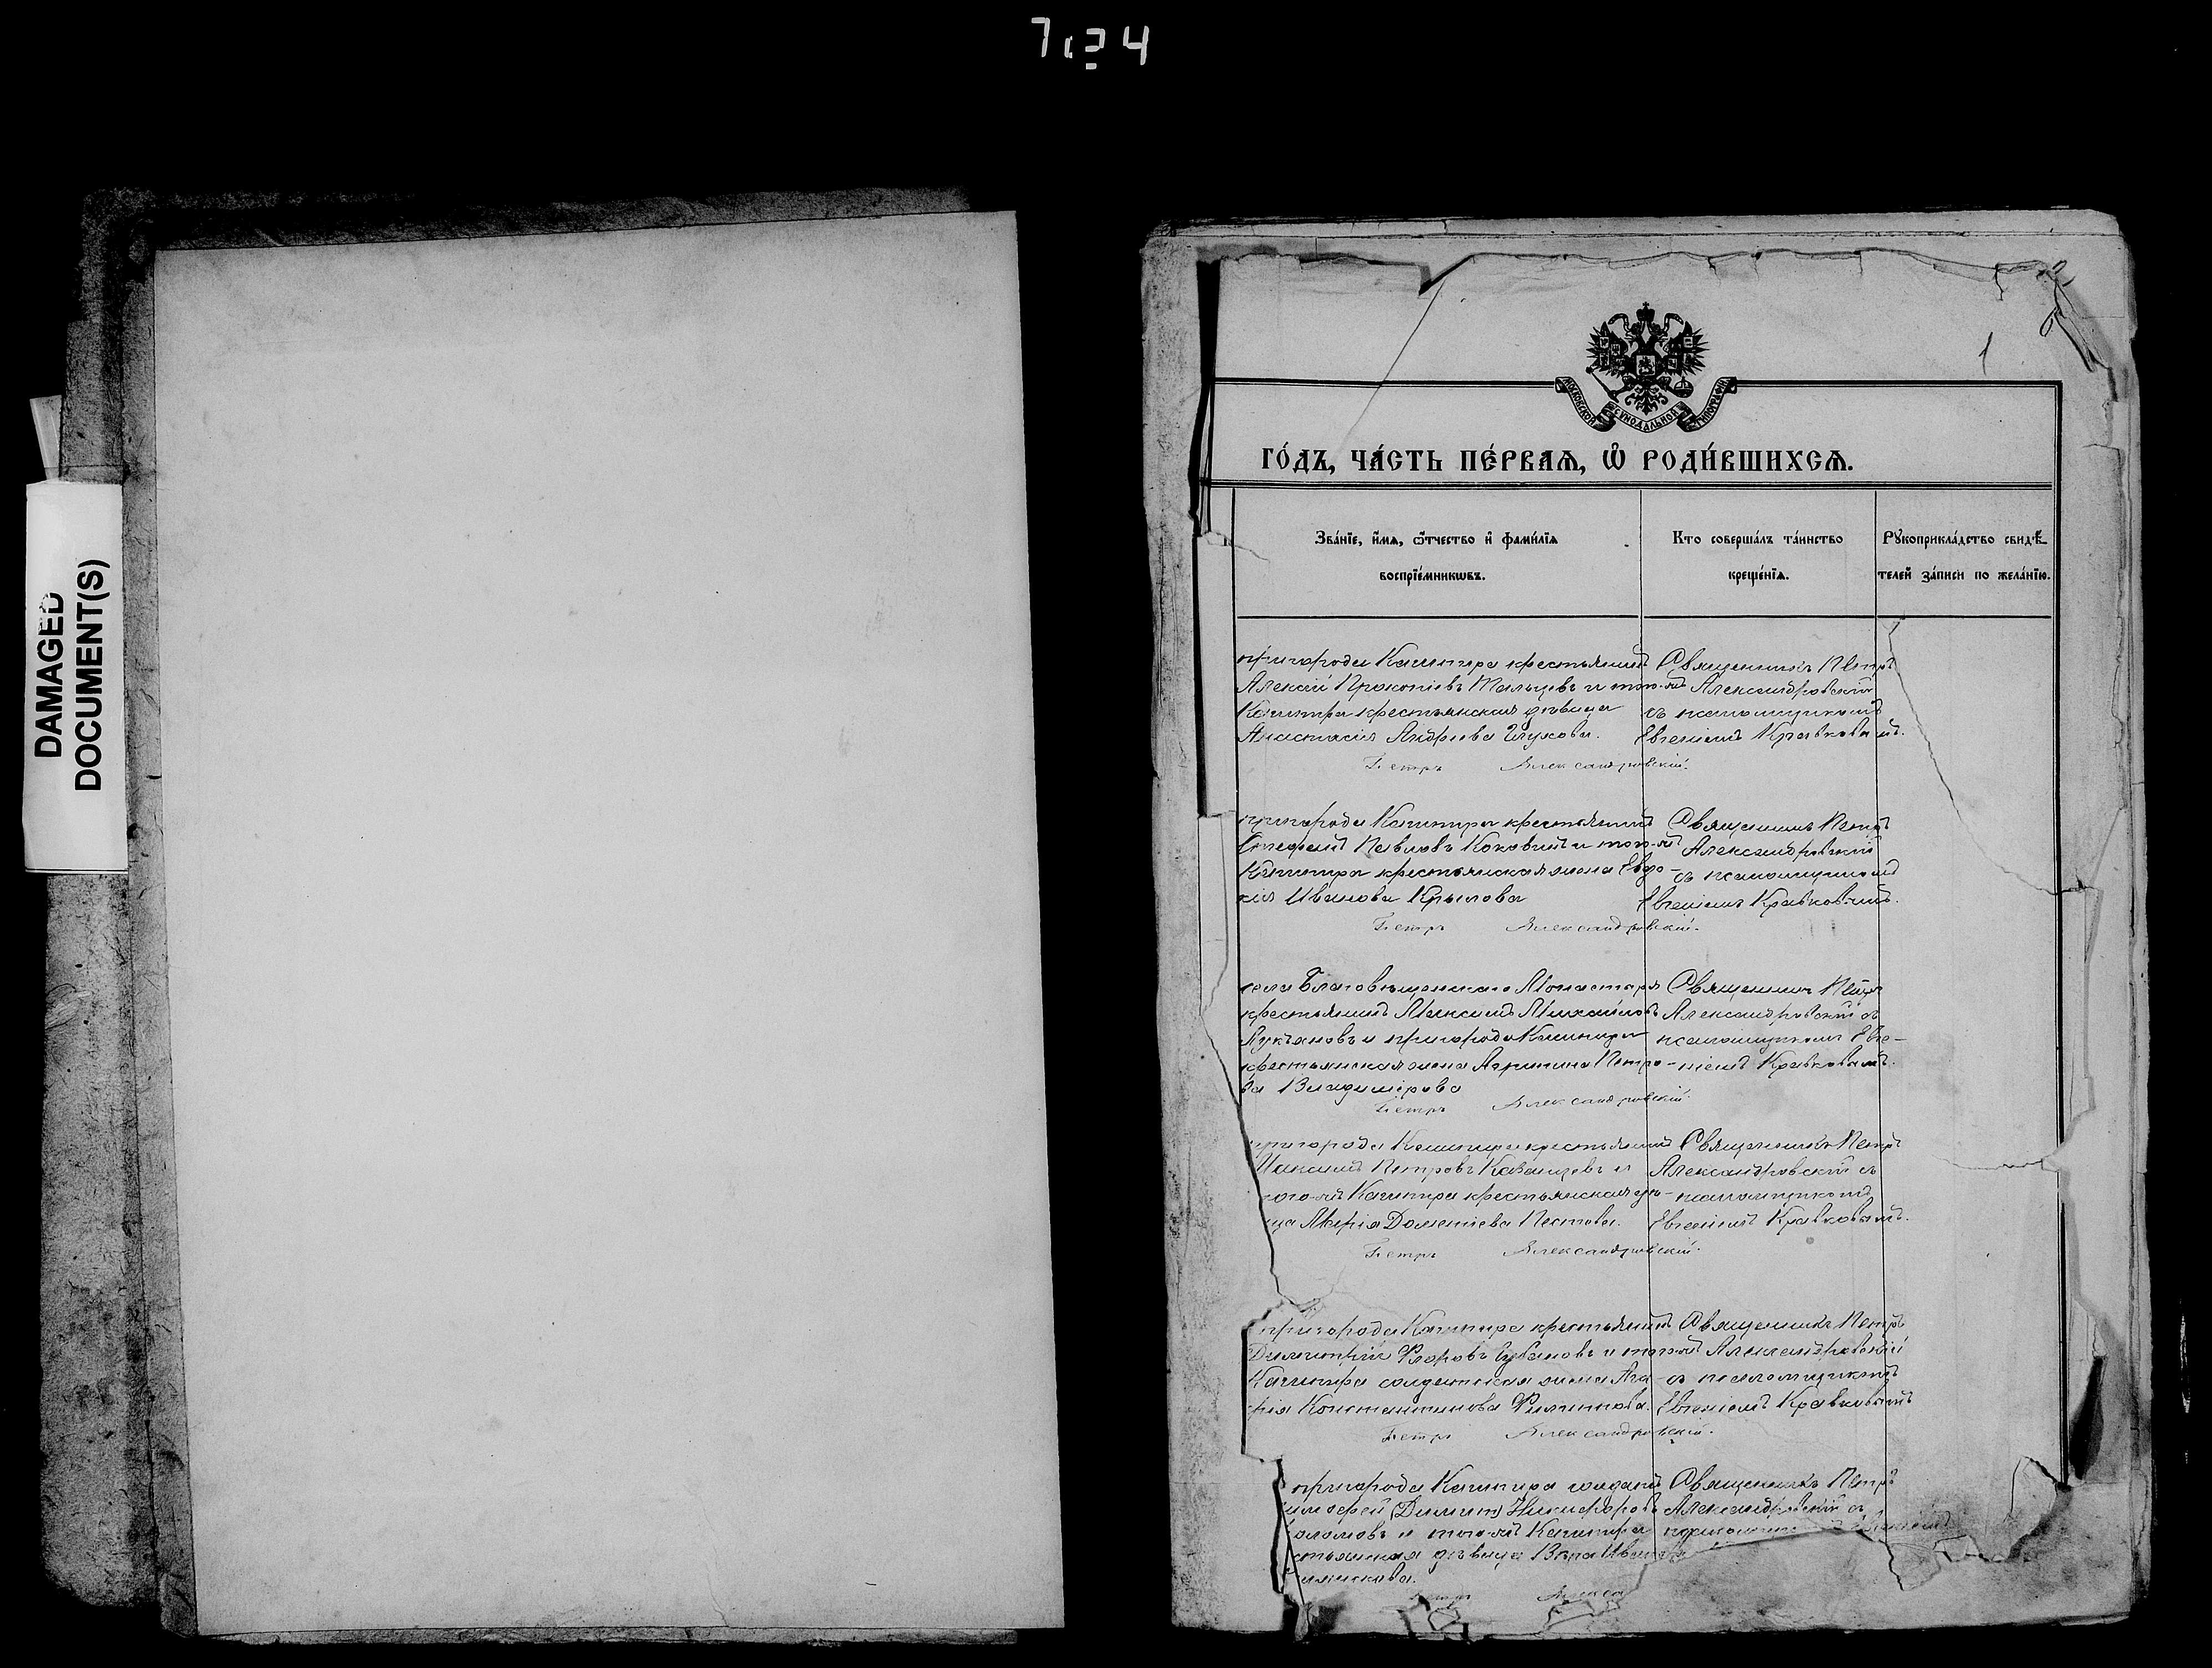 DAMAGED
DOCUMENT(S)
1
МОСКОВСКОЙ СѴНОДАЛЬНОЙ ТИПОГРАФІИ
ГО́ДЪ, ЧА́СТЬ ПЕ́РВАѦ, Ѡ҆ РОДИ́ВШИХСѦ.
Зва́нїе, и҆́мѧ, ѻ҆́тчество и҆ фами́лїѧ
воспрїе́мникѡвъ.
Кто соверша́лъ та́инство
креще́нїѧ.
Рꙋкоприкла́дство свидѣ́-
телей за́писи по жела́нїю.
пригорода Кашпира крестьянинъ
Алексій Прокопіевъ Мальцевъ и того-жъ
Кашпира крестьянская дѣвица
Анастасія Андреева Глухова.
Священникъ Петръ
Александровскій
съ псаломщикомъ
Евгеніемъ Кравковымъ.
Петръ Александровскій.
пригорода Кашпира крестьянинъ
Стефанъ Павловъ Коковинъ и того-жъ
Кашпира крестьянская жена Евдо-
кія Иванова Крылова
Священникъ Петръ
Александровскій
съ псаломщикомъ
Евгеніемъ Кравковымъ.
Петръ Александровскій.
села Благовѣщенскаго Монастыря
крестьянинъ Максимъ Михайловъ
и пригорода Кашпира
крестьянская жена Агрипина Петро-
ва Владимірова
Священникъ Петръ
Александровскій съ
псаломщикомъ Евге-
ніемъ Кравковымъ.
Петръ Александровскій.
пригорода Кашпира крестьянинъ
Петровъ Казанцевъ и
того-жъ Кашпира крестьянская дѣ-
ица Марія Дометіева Пестова.
Священникъ Петръ
Александровскій съ
псаломщикомъ
Евгеніемъ Кравковымъ.
Петръ Александровскій.
пригорода Кашпира крестьянинъ
Димитрій Флоровъ Губановъ и того-жъ
Кашпира солдатская жена Ага-
фія Константинова Филиппова.
Священникъ Петръ
Александровскій
съ псаломщикомъ
Евгеніемъ Кравковымъ
Петръ Александровскій.
пригорода Кашпира солдатъ
Никифоровъ
и того-жъ Кашпира
стьянская дѣвица Вѣра Иван
Священникъ Петръ
Александровскій съ
Петръ Алекса